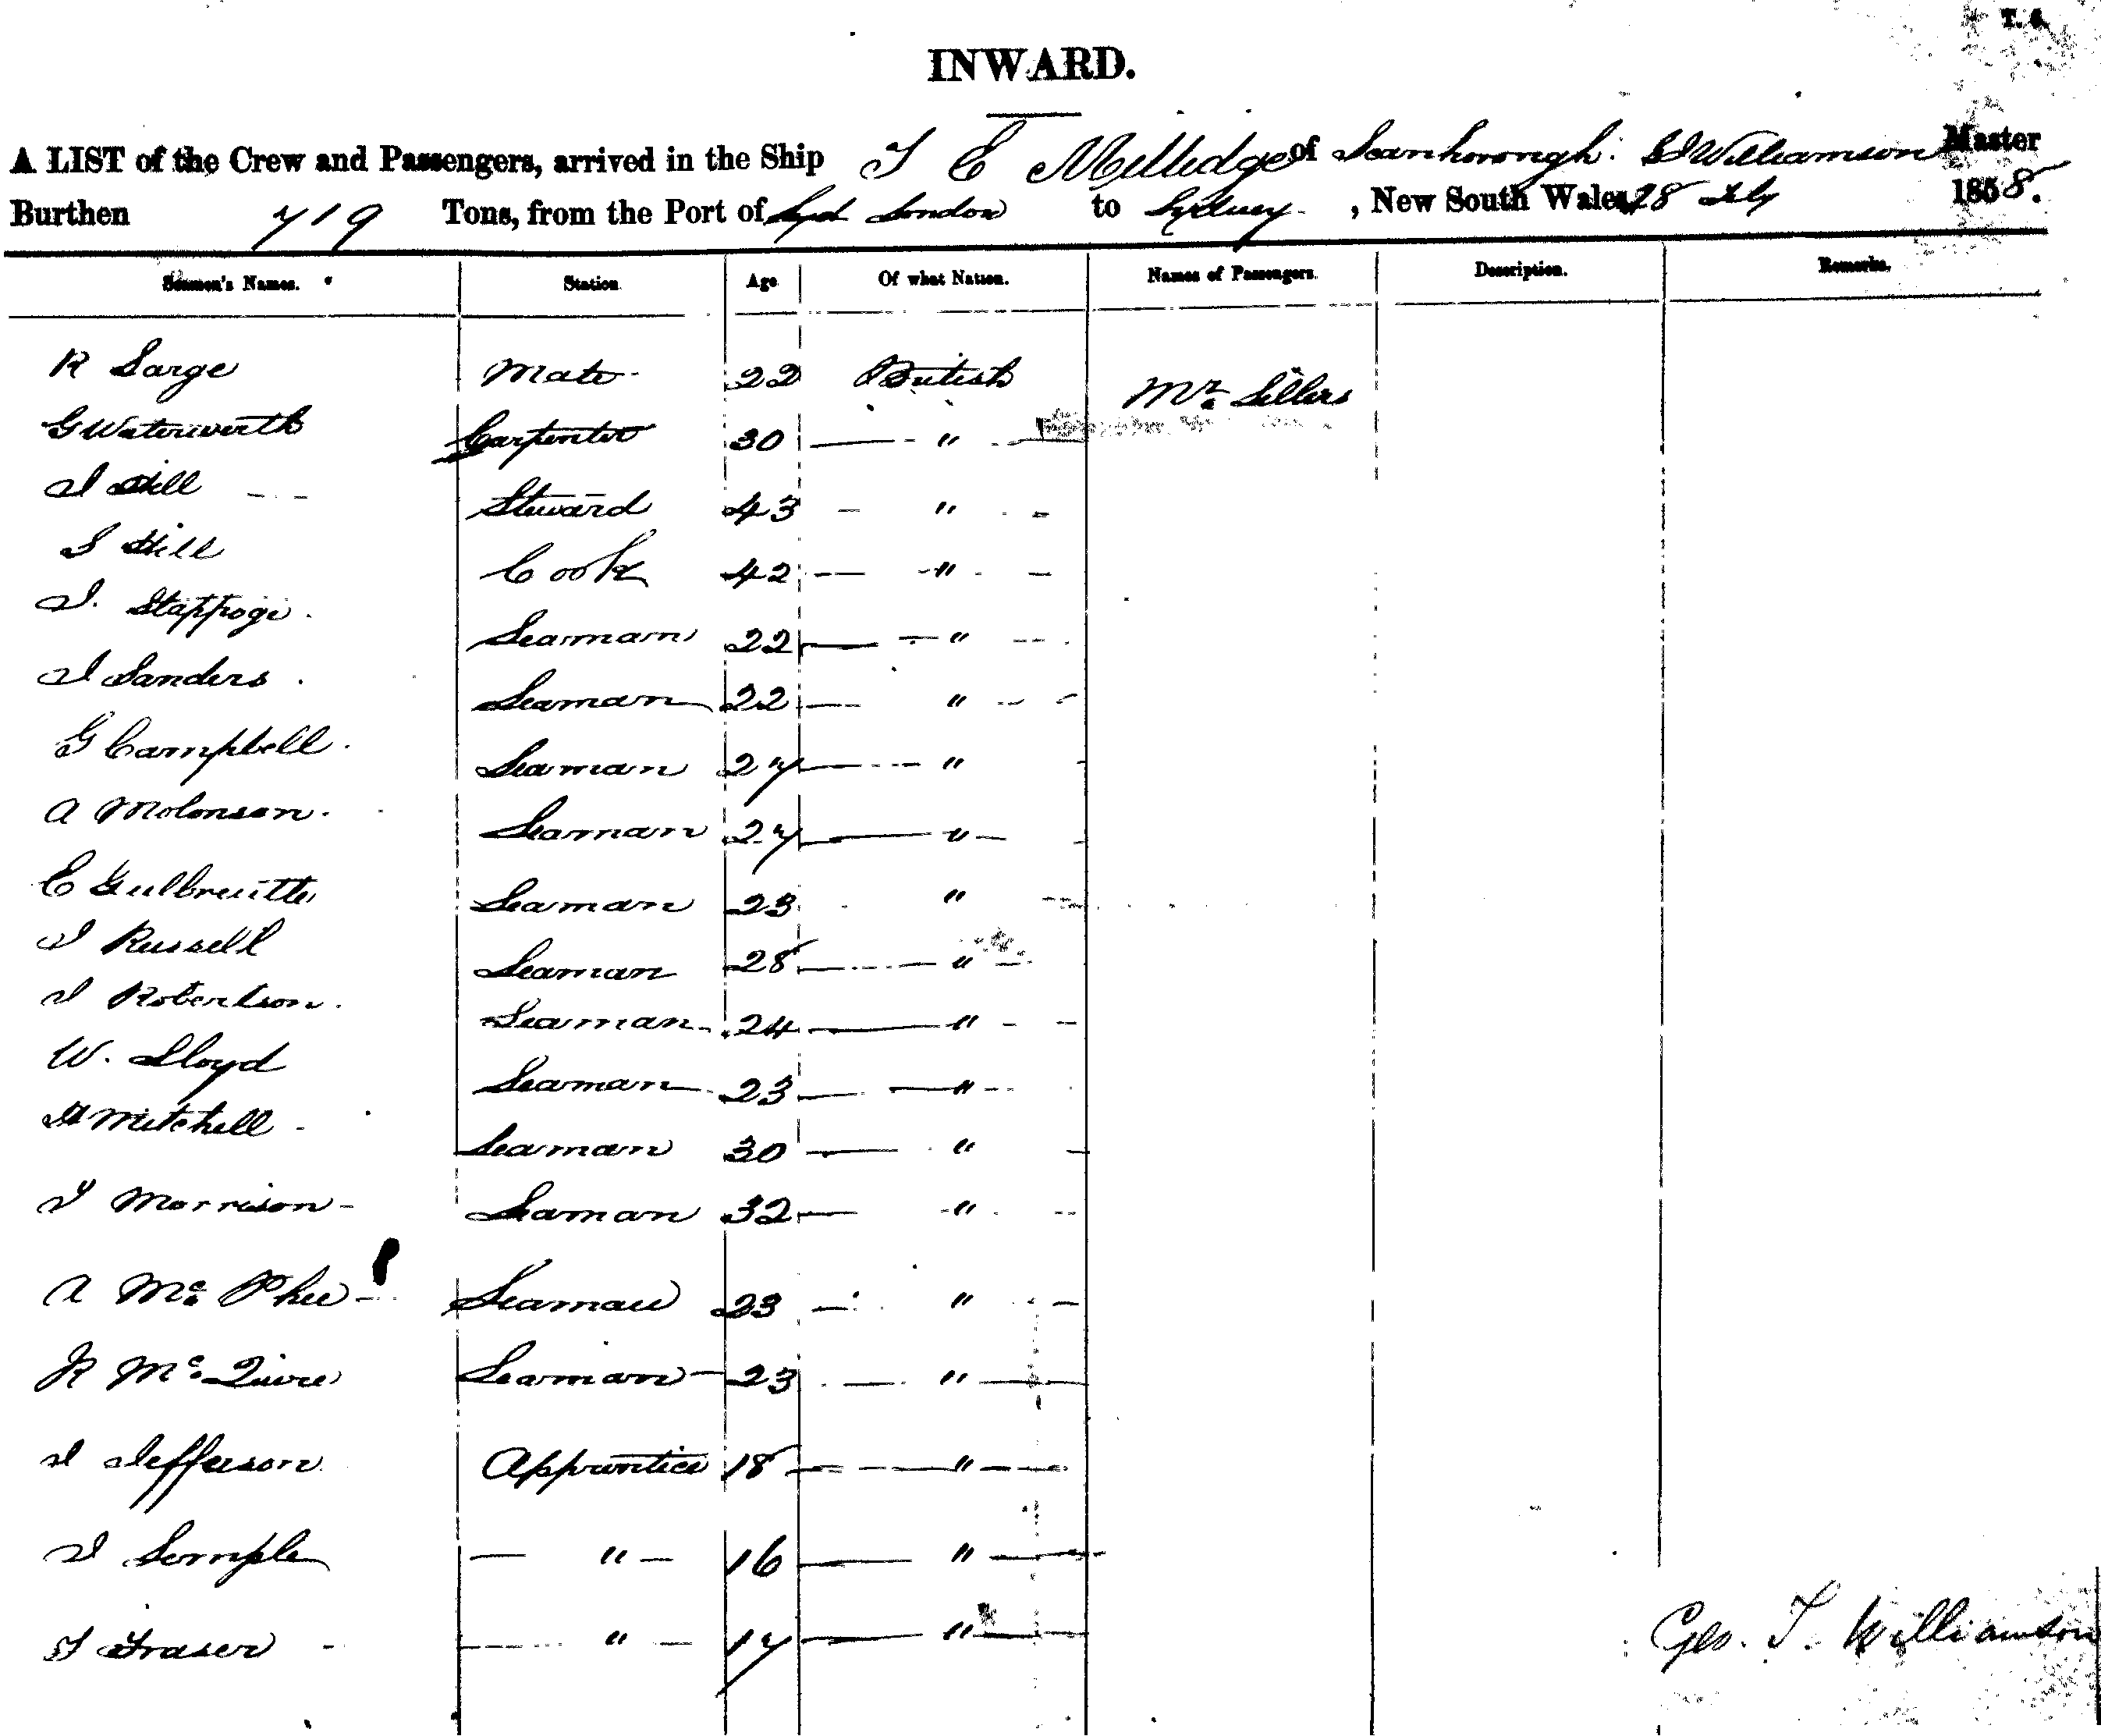 T. 6.
INWARD.
A LIST of the Crew and Passengers, arrived in the Ship T E Milledge of Scarborough. G T Williamson Master
Burthen 719 Tons, from the Port of London to Sydney, New South Wales, 28 July 1858.
Seamen's Names. Station Age Of what Nation. Names of Passengers. Description. Remarks.
R Sarge Mate 22 British Mr. Sillers
G Waterworth Carpenter 30 "
J Hill Steward 43 "
S Hill Cook 42 "
J. Seaman 22 "
J Sanders Seaman 22 "
G Campbell Seaman 27 "
A Molonson Seaman 27 "
E Seaman 23 "
J Russell Seaman 28 "
J Robertson Seaman 24 "
W. Lloyd Seaman 23 "
Mitchell Seaman 30 "
J Morrison Seaman 32 "
A Mc Phee Seaman 23 "
R Mc Quire Seaman 23 "
J Jefferson Apprentice 18 "
J Semple " 16 "
J Fraser " 17 "
Geo. T. Williamson